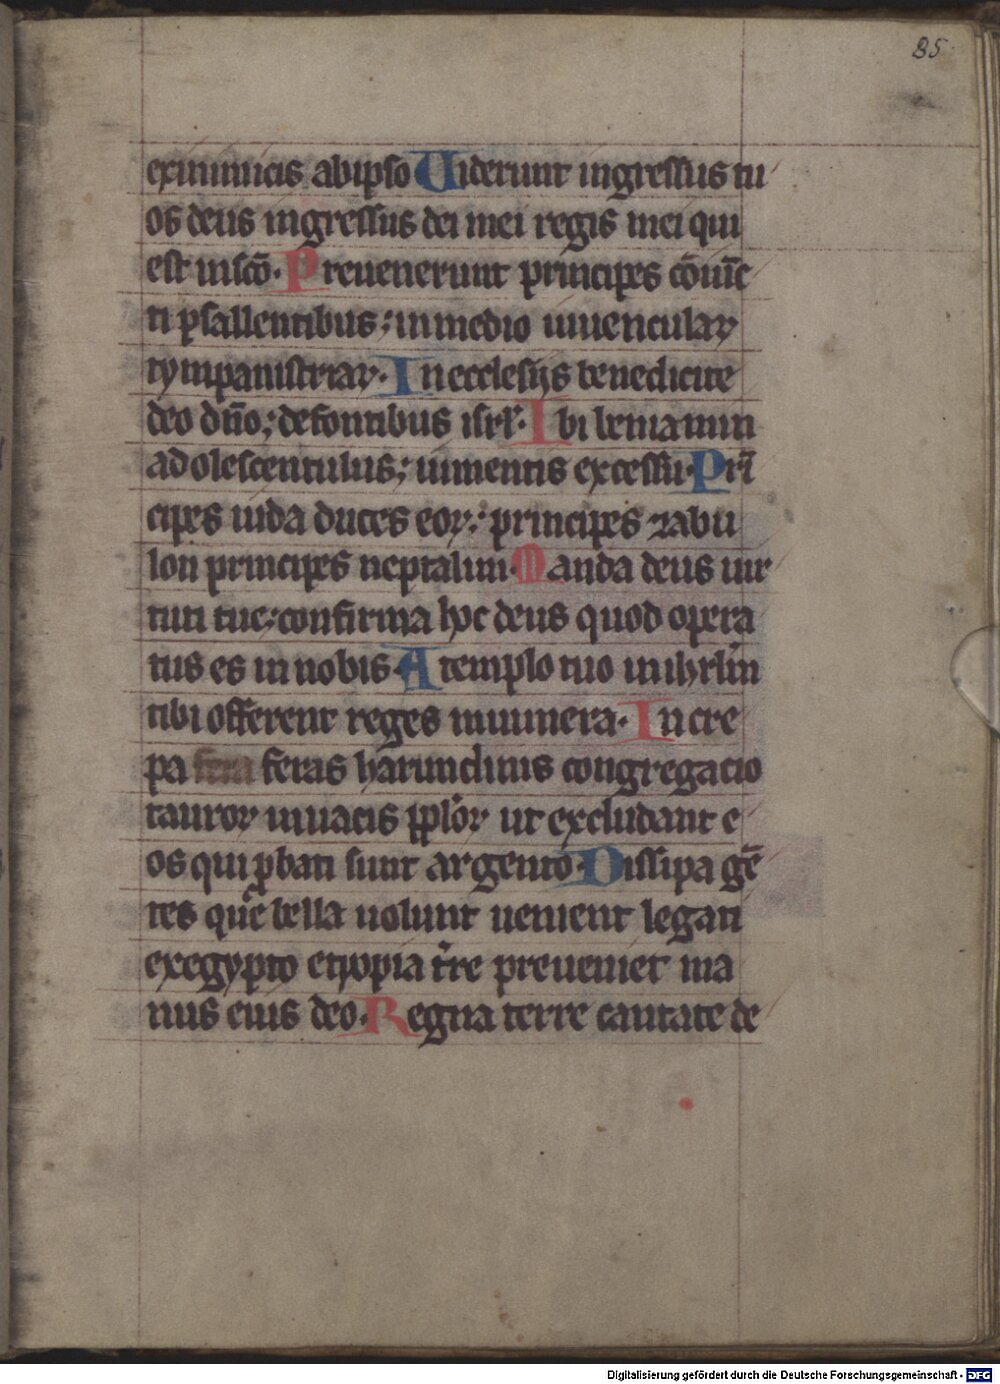 85
exinimicis abipso Uiderunt ingressus tu
os deus ingressus dei mei regis mei qui
est insc̄o. Preuenerunt principes c̄oiu̅c
ti psallentibus; inmedio iuuenculaꝝ
tympanistriaꝝ. In ecclesijs benedicite
deo dn̄o; defontibus isrl̄. Ibi beniamin
adolescentulus; inmentis excessu. Prī
cipes iuda duces eoꝝ; principes zabu
lon principes neptalim. Manda deus uir
tuti tue; confirma hoc deus quod opera
tus es in nobis. A templo tuo inihrl̄m
tibi offerent reges munera. Incre
pa feras harundinis congregacio
tauroꝝ inuacis pplo̅ꝝ ut excludant e
os qui ꝓbati sunt argento. Dissipa gē
tes que bella uolunt uenient legati
exegypto ethyopia t̄re preueniet ma
nus eius deo. Regna terre cantate de
Digitalisierung gefördert durch die Deutsche Forschungsgemeinschaft - DFG